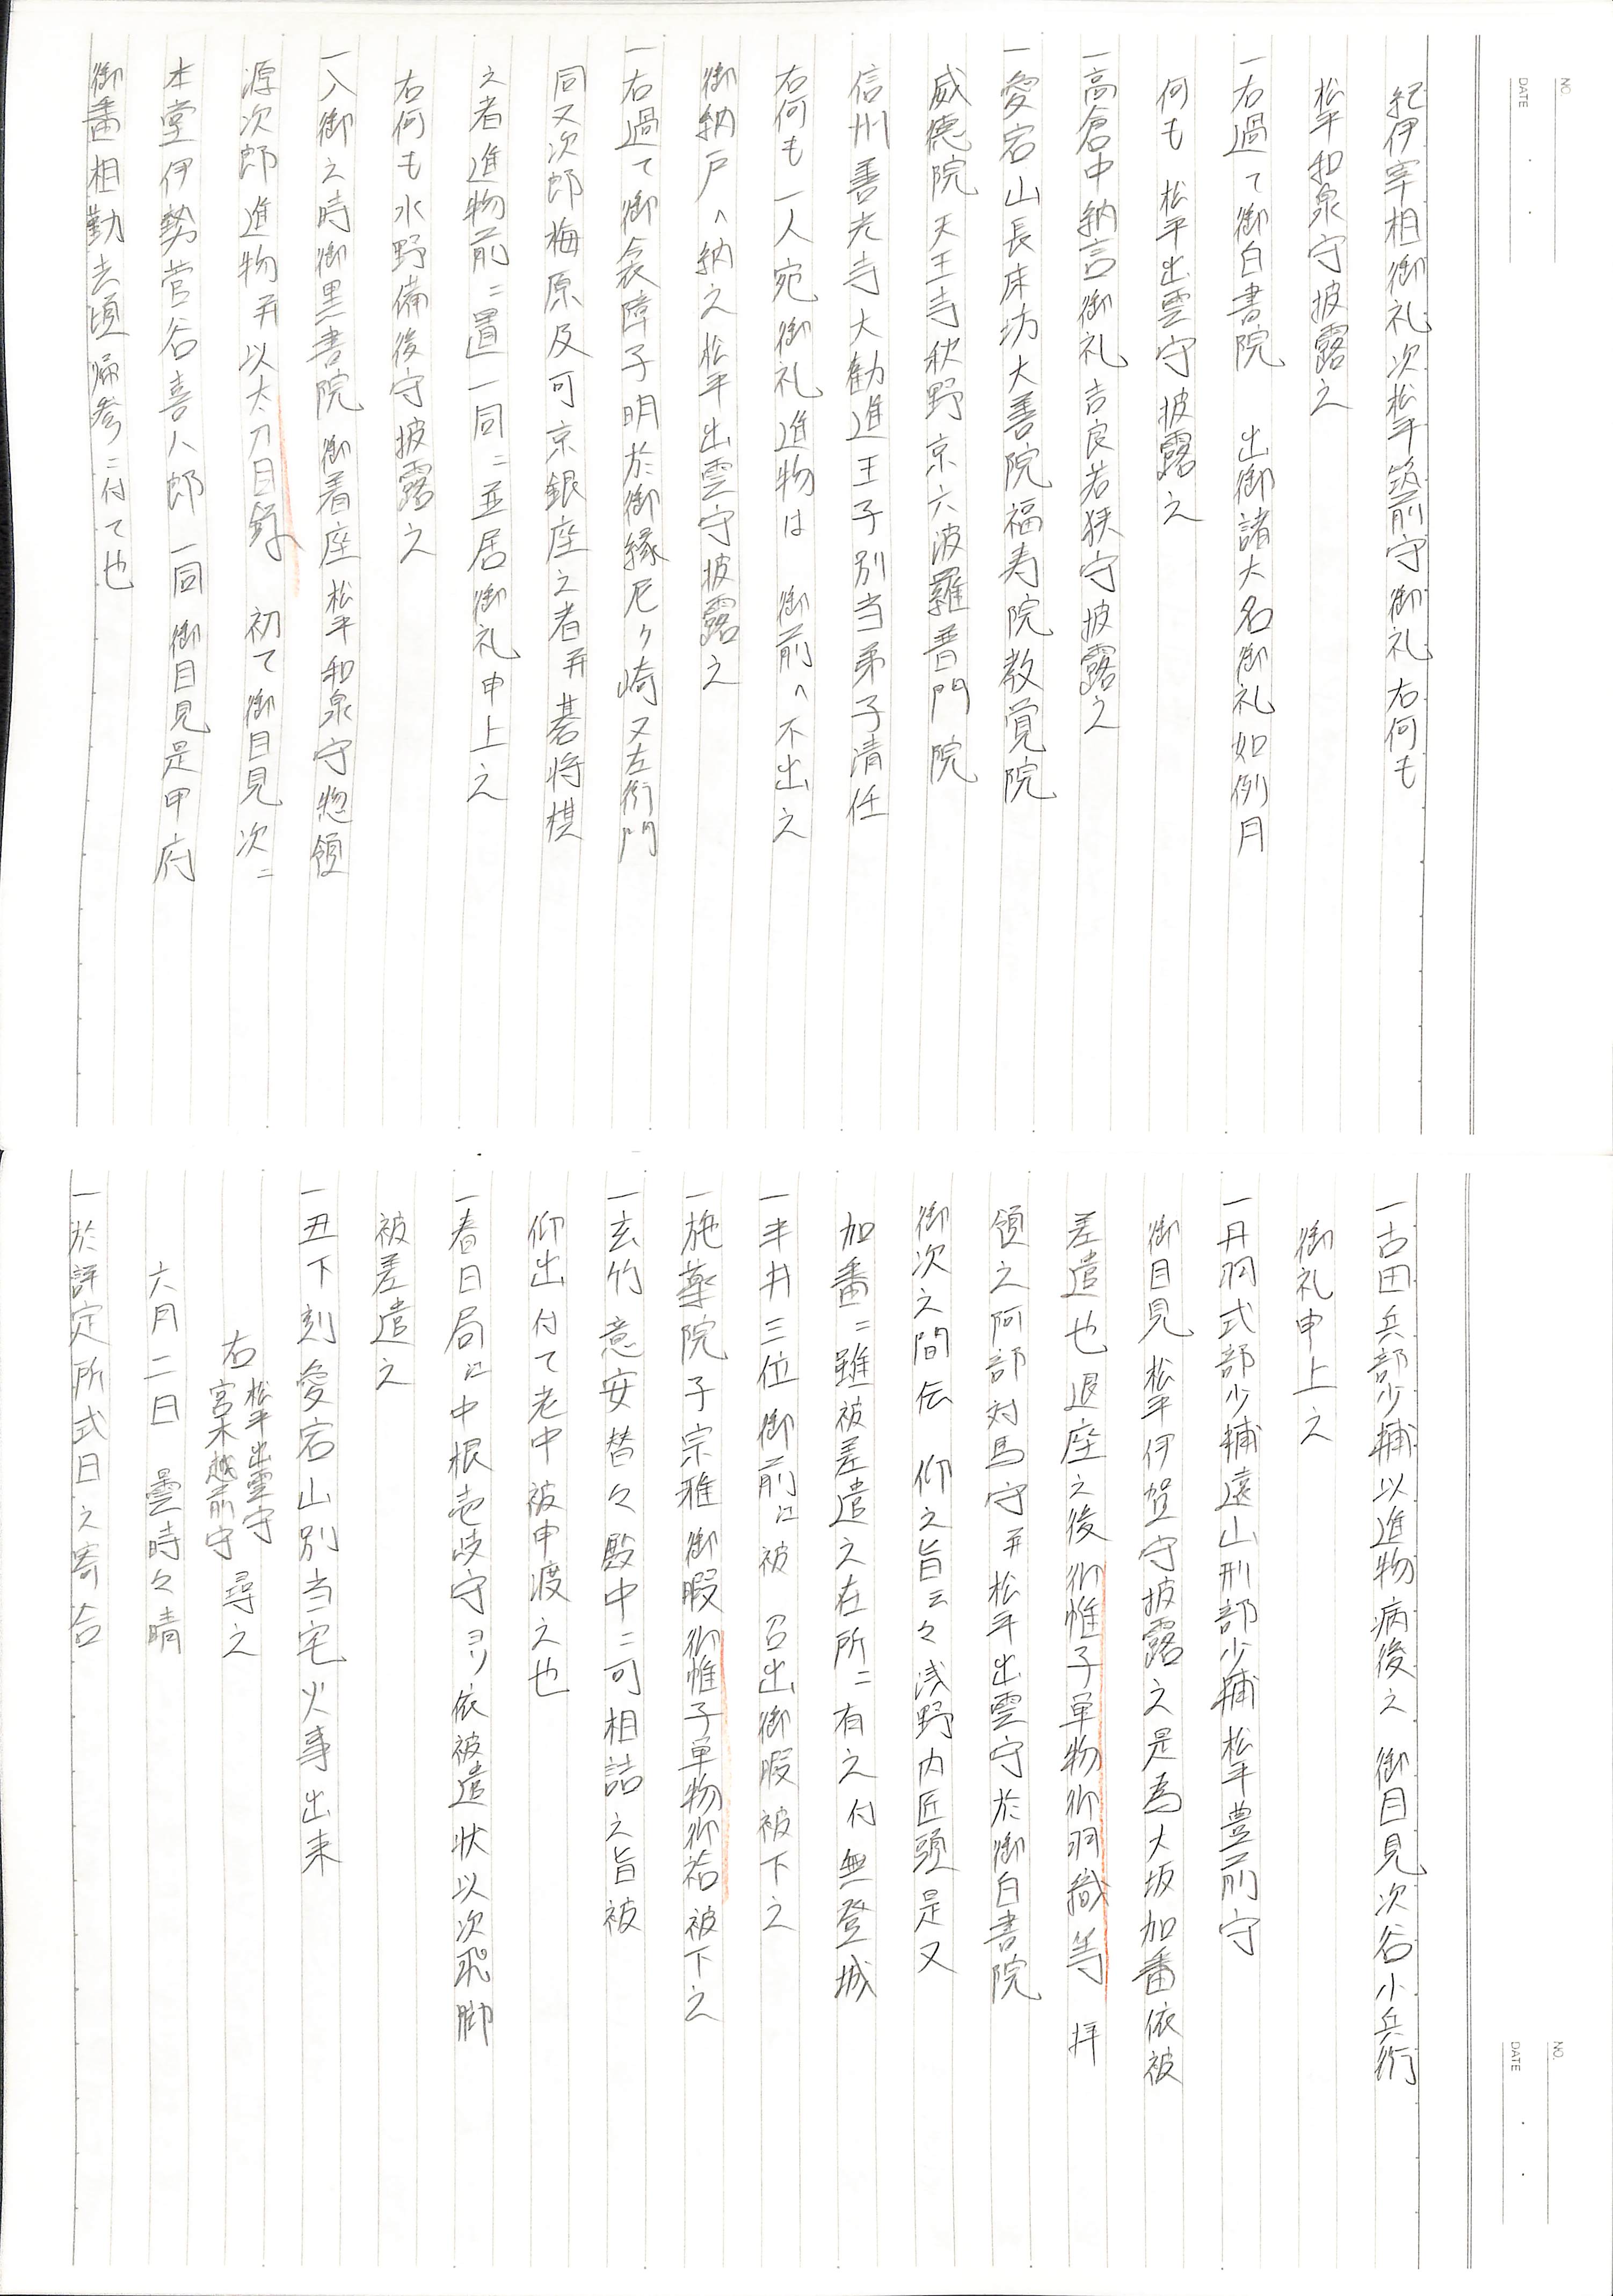 NO.
DATE
紀伊宰相御礼次松平筑前守御礼右何も
松平和泉守披露之
一右過て御白書院 出御諸大名御礼如例月
何も松平出雲守披露之
一高倉中納言御礼吉良若狭守披露之
一愛宕山長床坊大善院福寿院教覚院
威徳院天王寺秋野京六波羅普門院
信州善光寺大勧進王子別当弟子清任
右何も一人宛御礼進物は 御前へ不出之
御納戸へ納之松平出雲守披露之
一右過て御襖障子明於御縁尼ヶ崎又左衛門
同又次郎梅原及可京銀座之者并碁将棋
之者進物前ニ置一同ニ並居御礼申上之
右何も水野備後守披露之
一入御之時御黒書院御着座松平和泉守惣領
源次郎進物并以太刀目録 初て御目見次ニ
本堂伊勢菅谷喜八郎一同御目見是甲府
御番相勤去頃帰参ニ付て也
NO.
DATE
一古田兵部少輔以進物病後之御目見次谷小兵衛
御礼申上之
一丹羽式部少輔遠山刑部少輔松平豊前守
御目見松平伊賀守披露之是為大坂加番依被
差遣也退座之後御帷子単物御羽織等 拝
領之阿部対馬守并松平出雲守於御白書院
御次之間伝 仰之旨云々浅野内匠頭是又
加番ニ雖被差遣之在所ニ有之付無登城
一半井三位御前に被 召出御暇被下之
一施薬院子宗雅御暇御帷子単物御袷被下之
一玄竹意安替々殿中ニ可相詰之旨被
仰出付て老中被申渡之也
一春日局に中根壱岐守ヨリ依被遣状以次飛脚
被差遣之
一丑下刻愛宕山別当宅火事出来
右 松平出雲守 宮木越前守 尋之
六月二日 曇時々晴
一於評定所式日之寄合